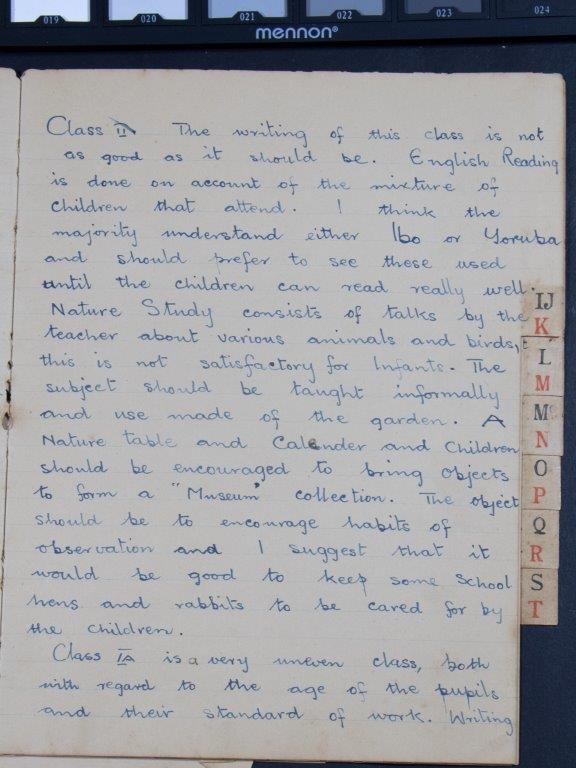 019 020 021 022 023 024
mennon®
Class II The writing of this class is not
as good as it should be. English Reading
is done on account of the mixture of
children that attend. I think the
majority understand either Ibo or Yoruba
and should prefer to see these used
until the children can read really well.
Nature Study consists of talks by the
teacher about various animals and birds,
this is not satisfactory for Infants. The
subject should be taught informally
and use made of the garden. A
Nature table and Calender and Children
should be encouraged to bring objects
to form a "Museum" collection. The object
should be to encourage habits of
observation and I suggest that it
would be good to keep some School
hens and rabbits to be cared for by
the children.
Class IA is a very uneven class, both
with regard to the age of the pupils
and their standard of work. Writing
IJ
K
L
M
Mc
N
O
P
Q
R
S
T